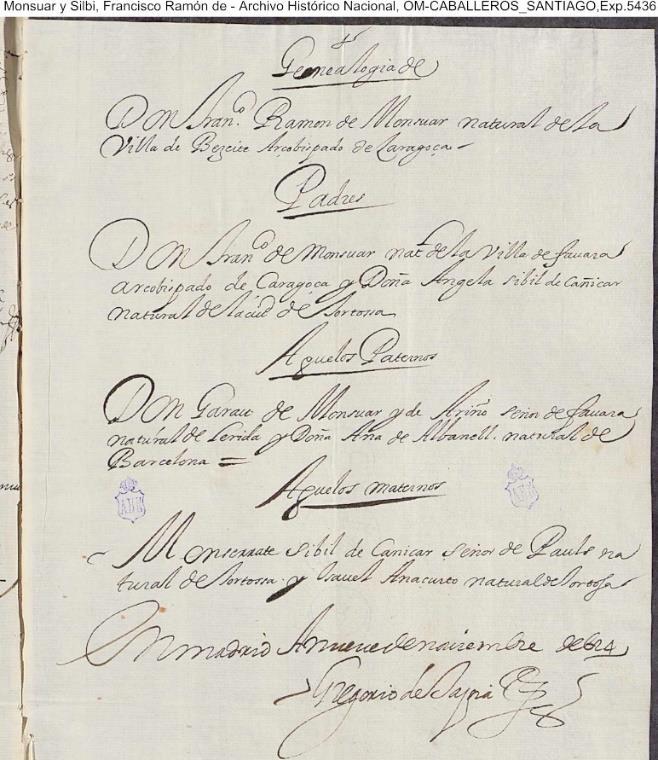 Monsuar y Silbi, Francisco Ramón de - Archivo Histórico Nacional, OM-CABALLEROS_SANTIAGO,Exp.5436
Genealogia de
Don Fran.co Ramon de Monsuar natural de la
Villa de Bezeite Arcobispado de Zaragoça
Padres
Don Fran.co de Monsuar nat.l de la Villa de favara
arcobispado de Caragoça y Doña Angela Sibil de Cañicar
natural de la ciud de Tortossa
Aguelos Paternos
Don Garau de Monsuar y de Ariño señor de favara
natural de Lerida y Doña Ana de Albanell natural de
Barcelona =
Aguelos maternos
Monserrate Sibil de Canicar señor de Pauls na
tural de Tortossa y Ysavel Anacurto natural de Tortosa
En madrid A nueve de noviembre de 624
Gregorio de
AHN
AHN